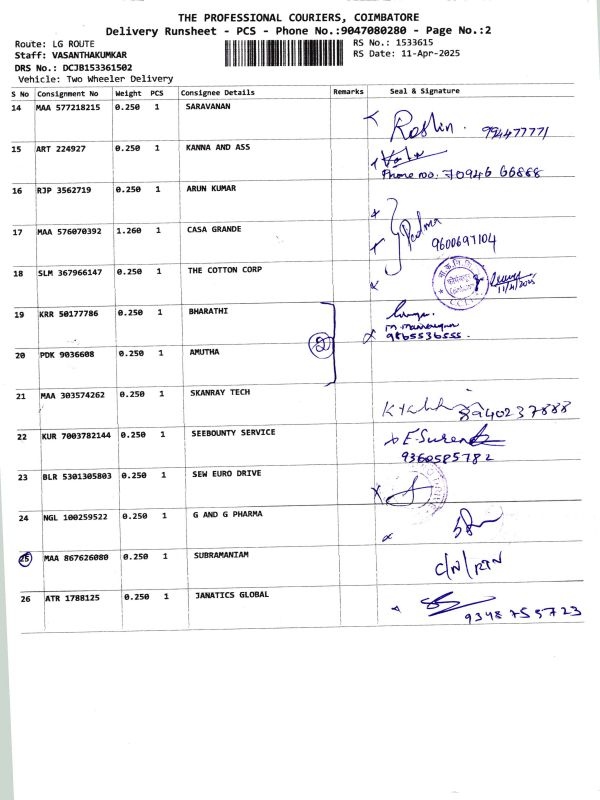 THE PROFESSIONAL COURIERS, COIMBATORE
Delivery Runsheet - PCS - Phone No.:9047080280 - Page No.:2
Route: LG ROUTE
RS No.: 1533615
Staff: VASANTHAKUMKAR
RS Date: 11-Apr-2025
DRS No.: DCJB153361502
Vehicle: Two Wheeler Delivery
S No Consignment No Weight PCS Consignee Details Remarks Seal & Signature
14 MAA 577218215 0.250 1 SARAVANAN
Roslin. 994477771
15 ART 224927 0.250 1 KANNA AND ASS
Phone no. 70946 66868
16 RJP 3562719 0.250 1 ARUN KUMAR
17 MAA 576070392 1.260 1 CASA GRANDE
Padma
9600697104
18 SLM 367966147 0.250 1 THE COTTON CORP
11/4/2025
19 KRR 50177786 0.250 1 BHARATHI
9865536555
2
20 PDK 9036608 0.250 1 AMUTHA
21 MAA 303574262 0.250 1 SKANRAY TECH
8940237888
22 KUR 7003782144 0.250 1 SEEBOUNTY SERVICE
E.Surend
9360585782
23 BLR 5301305803 0.250 1 SEW EURO DRIVE
24 NGL 100259522 0.250 1 G AND G PHARMA
25 MAA 867626080 0.250 1 SUBRAMANIAM
C/N/RTN
26 ATR 1788125 0.250 1 JANATICS GLOBAL
9348755723